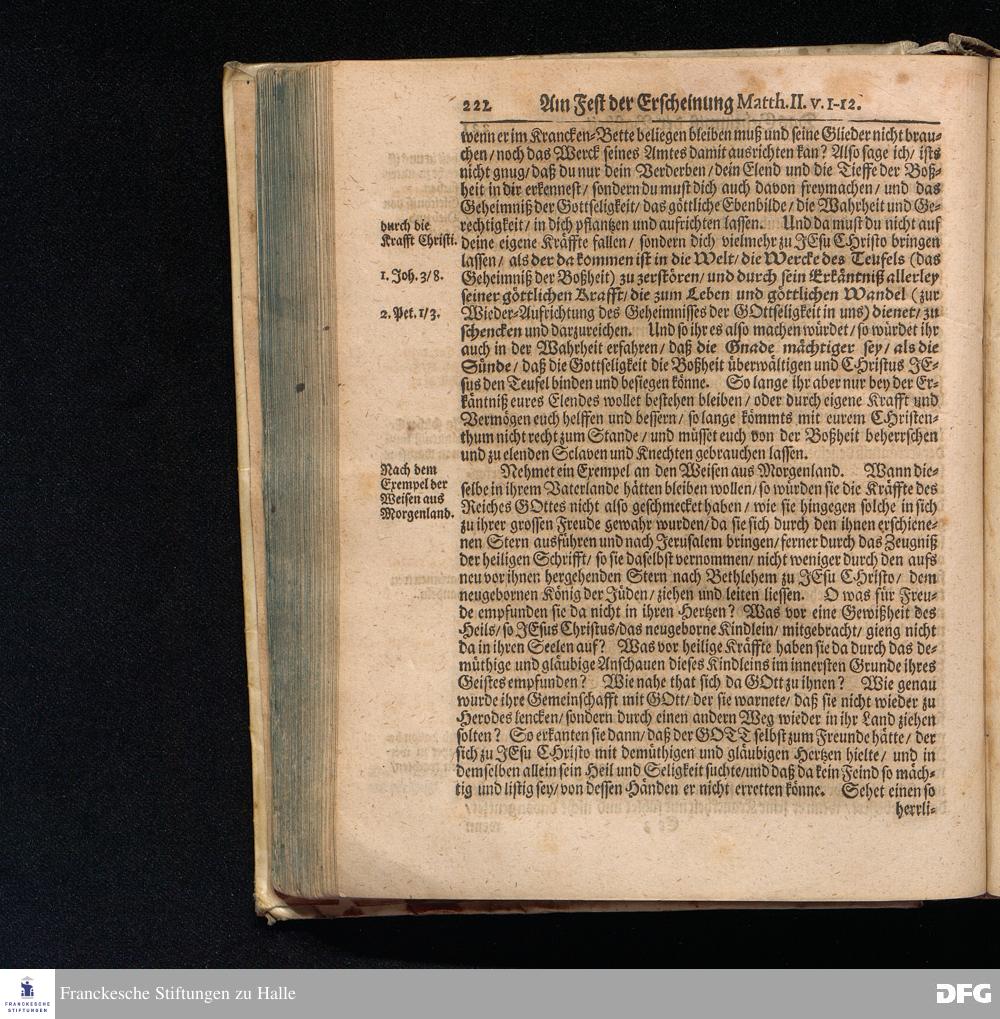 222 Am Fest der Erscheinung Matth. II. v. 1-12.
wenn er im Krancken-Bette beliegen bleiben muß und seine Glieder nicht brau-
chen / noch das Werck seines Amtes damit ausrichten kan? Also sage ich / ists
nicht gnug / daß du nur dein Verderben / dein Elend und die Tieffe der Boß-
heit in dir erkennest / sondern du must dich auch davon freymachen / und das
Geheimniß der Gottseligkeit / das göttliche Ebenbilde / die Wahrheit und Ge-
rechtigkeit / in dich pflantzen und aufrichten lassen. Und da must du nicht auf
durch die
Krafft Christi.
deine eigene Kräffte fallen / sondern dich vielmehr zu JEsu CHristo bringen
lassen / als der da kommen ist in die Welt / die Wercke des Teufels (das
1. Joh. 3/8.
Geheimniß der Boßheit) zu zerstören / und durch sein Erkäntniß allerley
seiner göttlichen Krafft / die zum Leben und göttlichen Wandel (zur
2. Pet. 1/3.
Wieder-Aufrichtung des Geheimnisses der GOttseligkeit in uns) dienet / zu
schencken und darzureichen. Und so ihr es also machen würdet / so würdet ihr
auch in der Wahrheit erfahren / daß die Gnade mächtiger sey / als die
Sünde / daß die Gottseligkeit die Boßheit überwältigen und CHristus JE-
sus den Teufel binden und besiegen könne. So lange ihr aber nur bey der Er-
käntniß eures Elendes wollet bestehen bleiben / oder durch eigene Krafft und
Vermögen euch helffen und bessern / so lange kömmts mit eurem CHristen-
thum nicht recht zum Stande / und müsset euch von der Boßheit beherrschen
und zu elenden Sclaven und Knechten gebrauchen lassen.
Nach dem
Exempel der
Weisen aus
Morgenland.
Nehmet ein Exempel an den Weisen aus Morgenland. Wann die-
selbe in ihrem Vaterlande hätten bleiben wollen / so würden sie die Kräffte des
Reiches GOttes nicht also geschmecket haben / wie sie hingegen solche in sich
zu ihrer grossen Freude gewahr wurden / da sie sich durch den ihnen erschiene-
nen Stern ausführen und nach Jerusalem bringen / ferner durch das Zeugniß
der heiligen Schrifft / so sie daselbst vernommen / nicht weniger durch den aufs
neu vor ihnen hergehenden Stern nach Bethlehem zu JEsu CHristo / dem
neugebornen König der Jüden / ziehen und leiten liessen. O was für Freu-
de empfunden sie da nicht in ihren Hertzen? Was vor eine Gewißheit des
Heils / so JEsus Christus / das neugeborne Kindlein / mitgebracht / gieng nicht
da in ihren Seelen auf? Was vor heilige Kräffte haben sie da durch das de-
müthige und gläubige Anschauen dieses Kindleins im innersten Grunde ihres
Geistes empfunden? Wie nahe that sich da GOtt zu ihnen? Wie genau
wurde ihre Gemeinschafft mit GOtt / der sie warnete / daß sie nicht wieder zu
Herodes lencken / sondern durch einen andern Weg wieder in ihr Land ziehen
solten? So erkanten sie dann / daß der GOTT selbst zum Freunde hätte / der
sich zu JEsu CHristo mit demüthigen und gläubigen Hertzen hielte / und in
demselben allein sein Heil und Seligkeit suchte / und daß da kein Feind so mäch-
tig und listig sey / von dessen Händen er nicht erretten könne. Sehet einen so
herrli-
FRANCKESCHE
STIFTUNGEN
Franckesche Stiftungen zu Halle
DFG